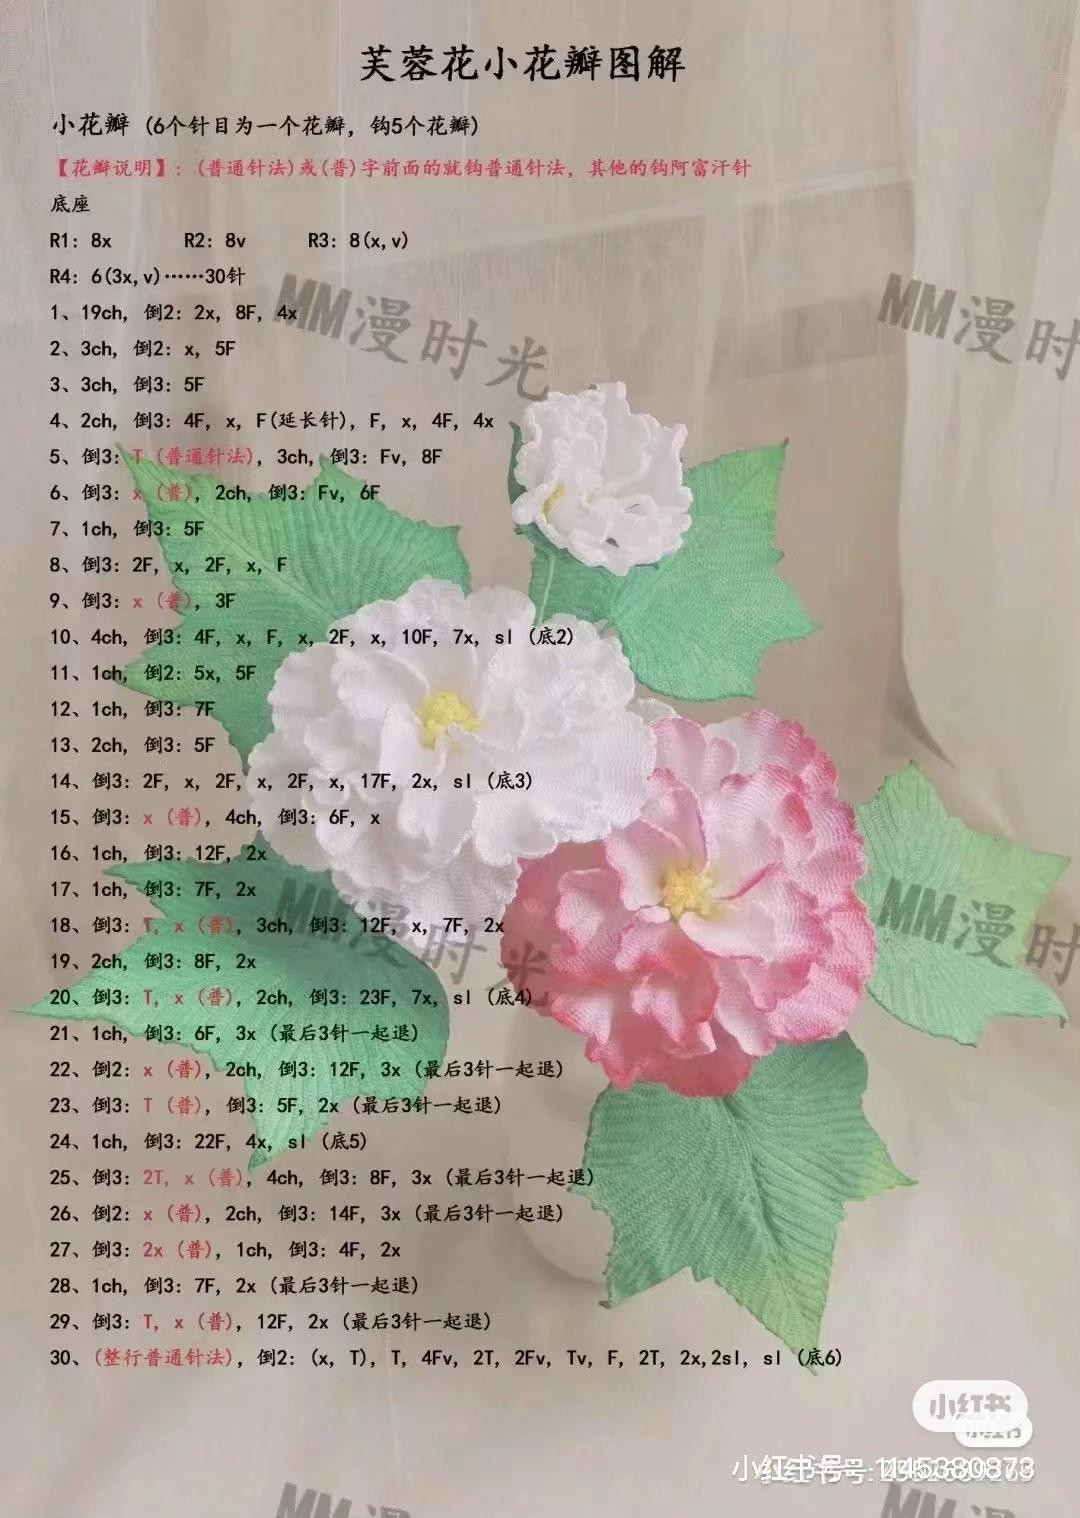 芙蓉花小花瓣图解
小花瓣 (6个针目为一个花瓣, 钩5个花瓣)
【花瓣说明】: (普通针法)或(普)字前面的就钩普通针法, 其他的钩阿富汗针
底座
R1: 8x R2: 8v R3: 8(x,v)
R4: 6(3x,v)……30针
1、19ch, 倒2: 2x, 8F, 4x
2、3ch, 倒2: x, 5F
3、3ch, 倒3: 5F
4、2ch, 倒3: 4F, x, F(延长针), F, x, 4F, 4x
5、倒3: T (普通针法), 3ch, 倒3: Fv, 8F
6、倒3: x (普), 2ch, 倒3: Fv, 6F
7、1ch, 倒3: 5F
8、倒3: 2F, x, 2F, x, F
9、倒3: x (普), 3F
10、4ch, 倒3: 4F, x, F, x, 2F, x, 10F, 7x, sl (底2)
11、1ch, 倒2: 5x, 5F
12、1ch, 倒3: 7F
13、2ch, 倒3: 5F
14、倒3: 2F, x, 2F, x, 2F, x, 17F, 2x, sl (底3)
15、倒3: x (普), 4ch, 倒3: 6F, x
16、1ch, 倒3: 12F, 2x
17、1ch, 倒3: 7F, 2x
18、倒3: T, x (普), 3ch, 倒3: 12F, x, 7F, 2x
19、2ch, 倒3: 8F, 2x
20、倒3: T, x (普), 2ch, 倒3: 23F, 7x, sl (底4)
21、1ch, 倒3: 6F, 3x (最后3针一起退)
22、倒2: x (普), 2ch, 倒3: 12F, 3x (最后3针一起退)
23、倒3: T (普), 倒3: 5F, 2x (最后3针一起退)
24、1ch, 倒3: 22F, 4x, sl (底5)
25、倒3: 2T, x (普), 4ch, 倒3: 8F, 3x (最后3针一起退)
26、倒2: x (普), 2ch, 倒3: 14F, 3x (最后3针一起退)
27、倒3: 2x (普), 1ch, 倒3: 4F, 2x
28、1ch, 倒3: 7F, 2x (最后3针一起退)
29、倒3: T, x (普), 12F, 2x (最后3针一起退)
30、(整行普通针法), 倒2: (x, T), T, 4Fv, 2T, 2Fv, Tv, F, 2T, 2x,2sl, sl (底6)
MM漫时光
MM漫时
MM漫时光
MM漫时
小红书
小红书
小红书号: 1145380873